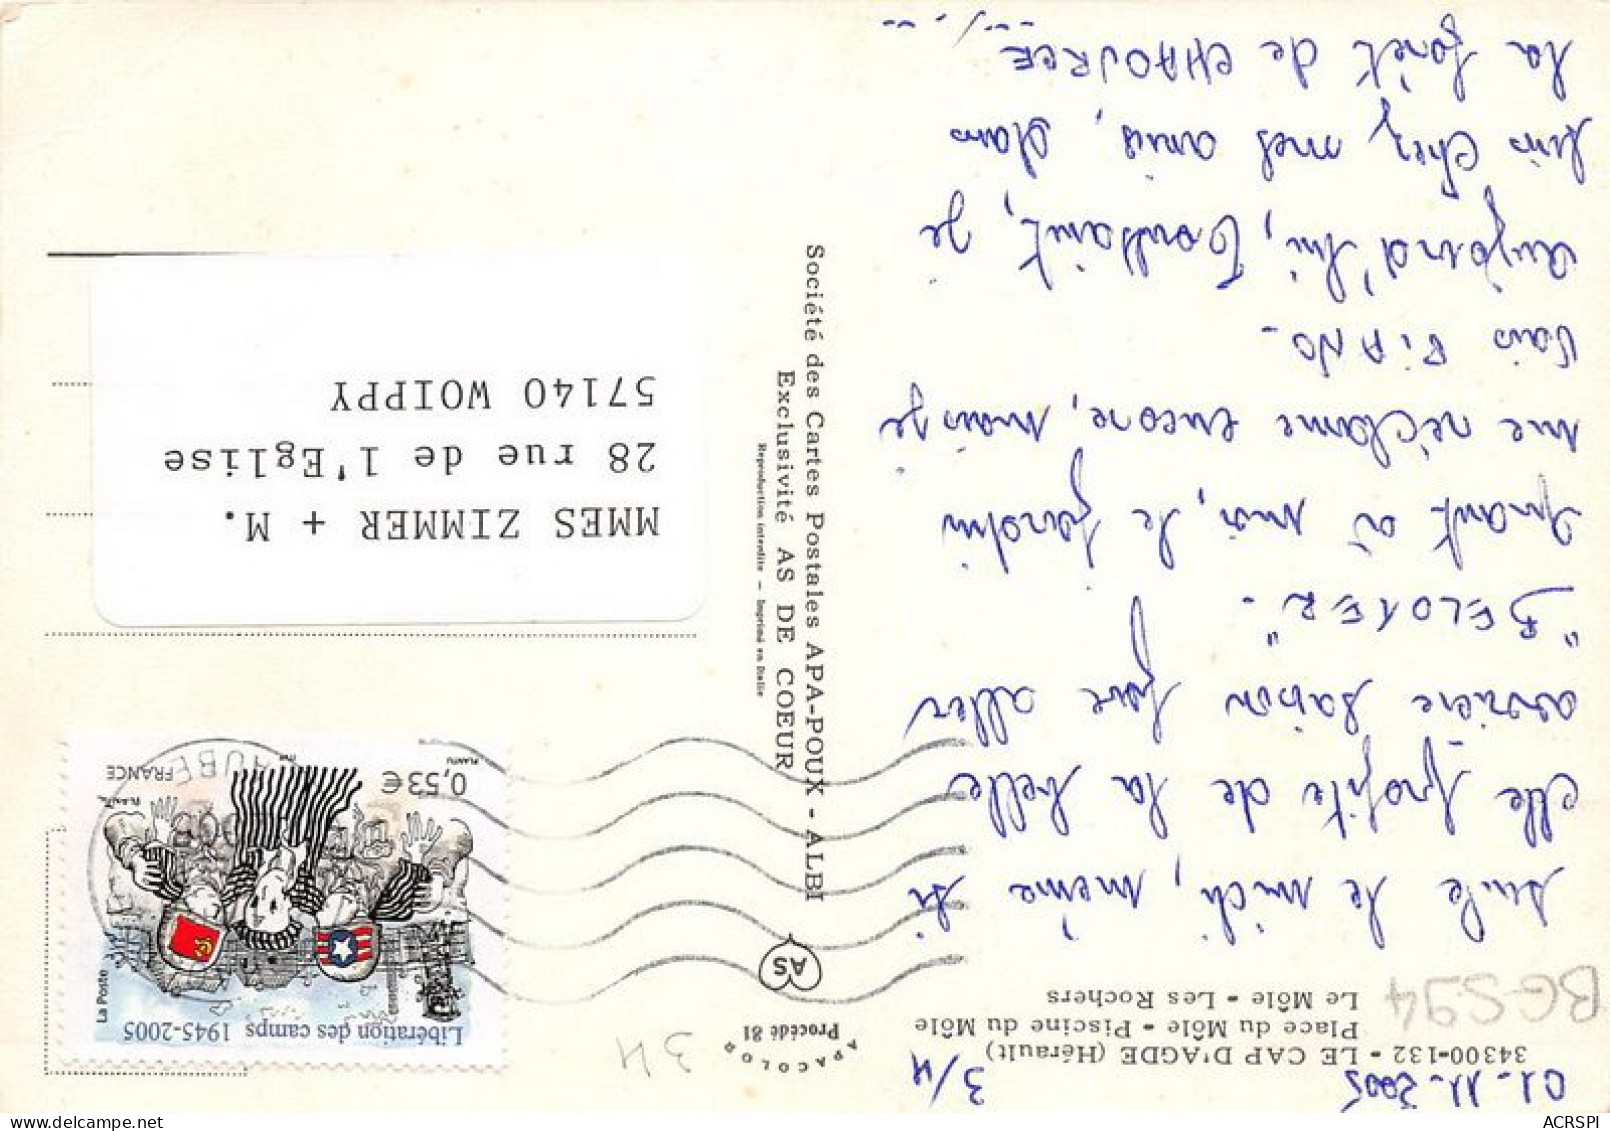 01-11-2005
3/4
34300-132 - LE CAP D'AGDE (Hérault)
Place du Môle - Piscine du Môle
Le Môle - Les Rochers
BGS94
suite le midi, même si
elle profite de la belle
arrière saison pour aller
"BELOTER".
Quant à moi, le jardin
me réclame encore, mais je
vais PIANO.
Aujourd'hui, Toussaint, je
suis chez mes amis, dans
la forêt de CHAOURCE
APACOLOR
Procédé 81
AS
Société des Cartes Postales APA-POUX - ALBI
Exclusivité AS DE COEUR
Reproduction interdite - Imprimé en Italie
34
Libération des camps 1945-2005
La Poste
0,53€
FRANCE
PLANTU
AUBE
MMES ZIMMER + M.
28 rue de l'Eglise
57140 WOIPPY
ACRSPI